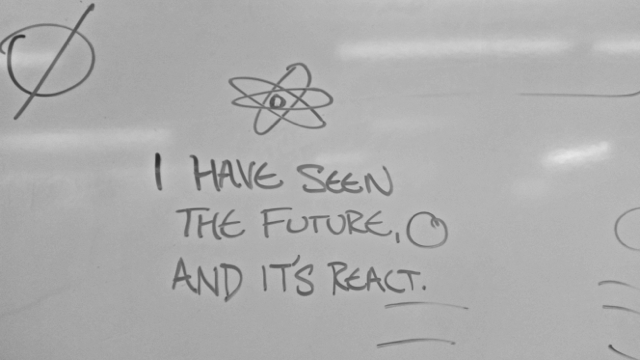 I HAVE SEEN
THE FUTURE,
AND IT'S REACT.